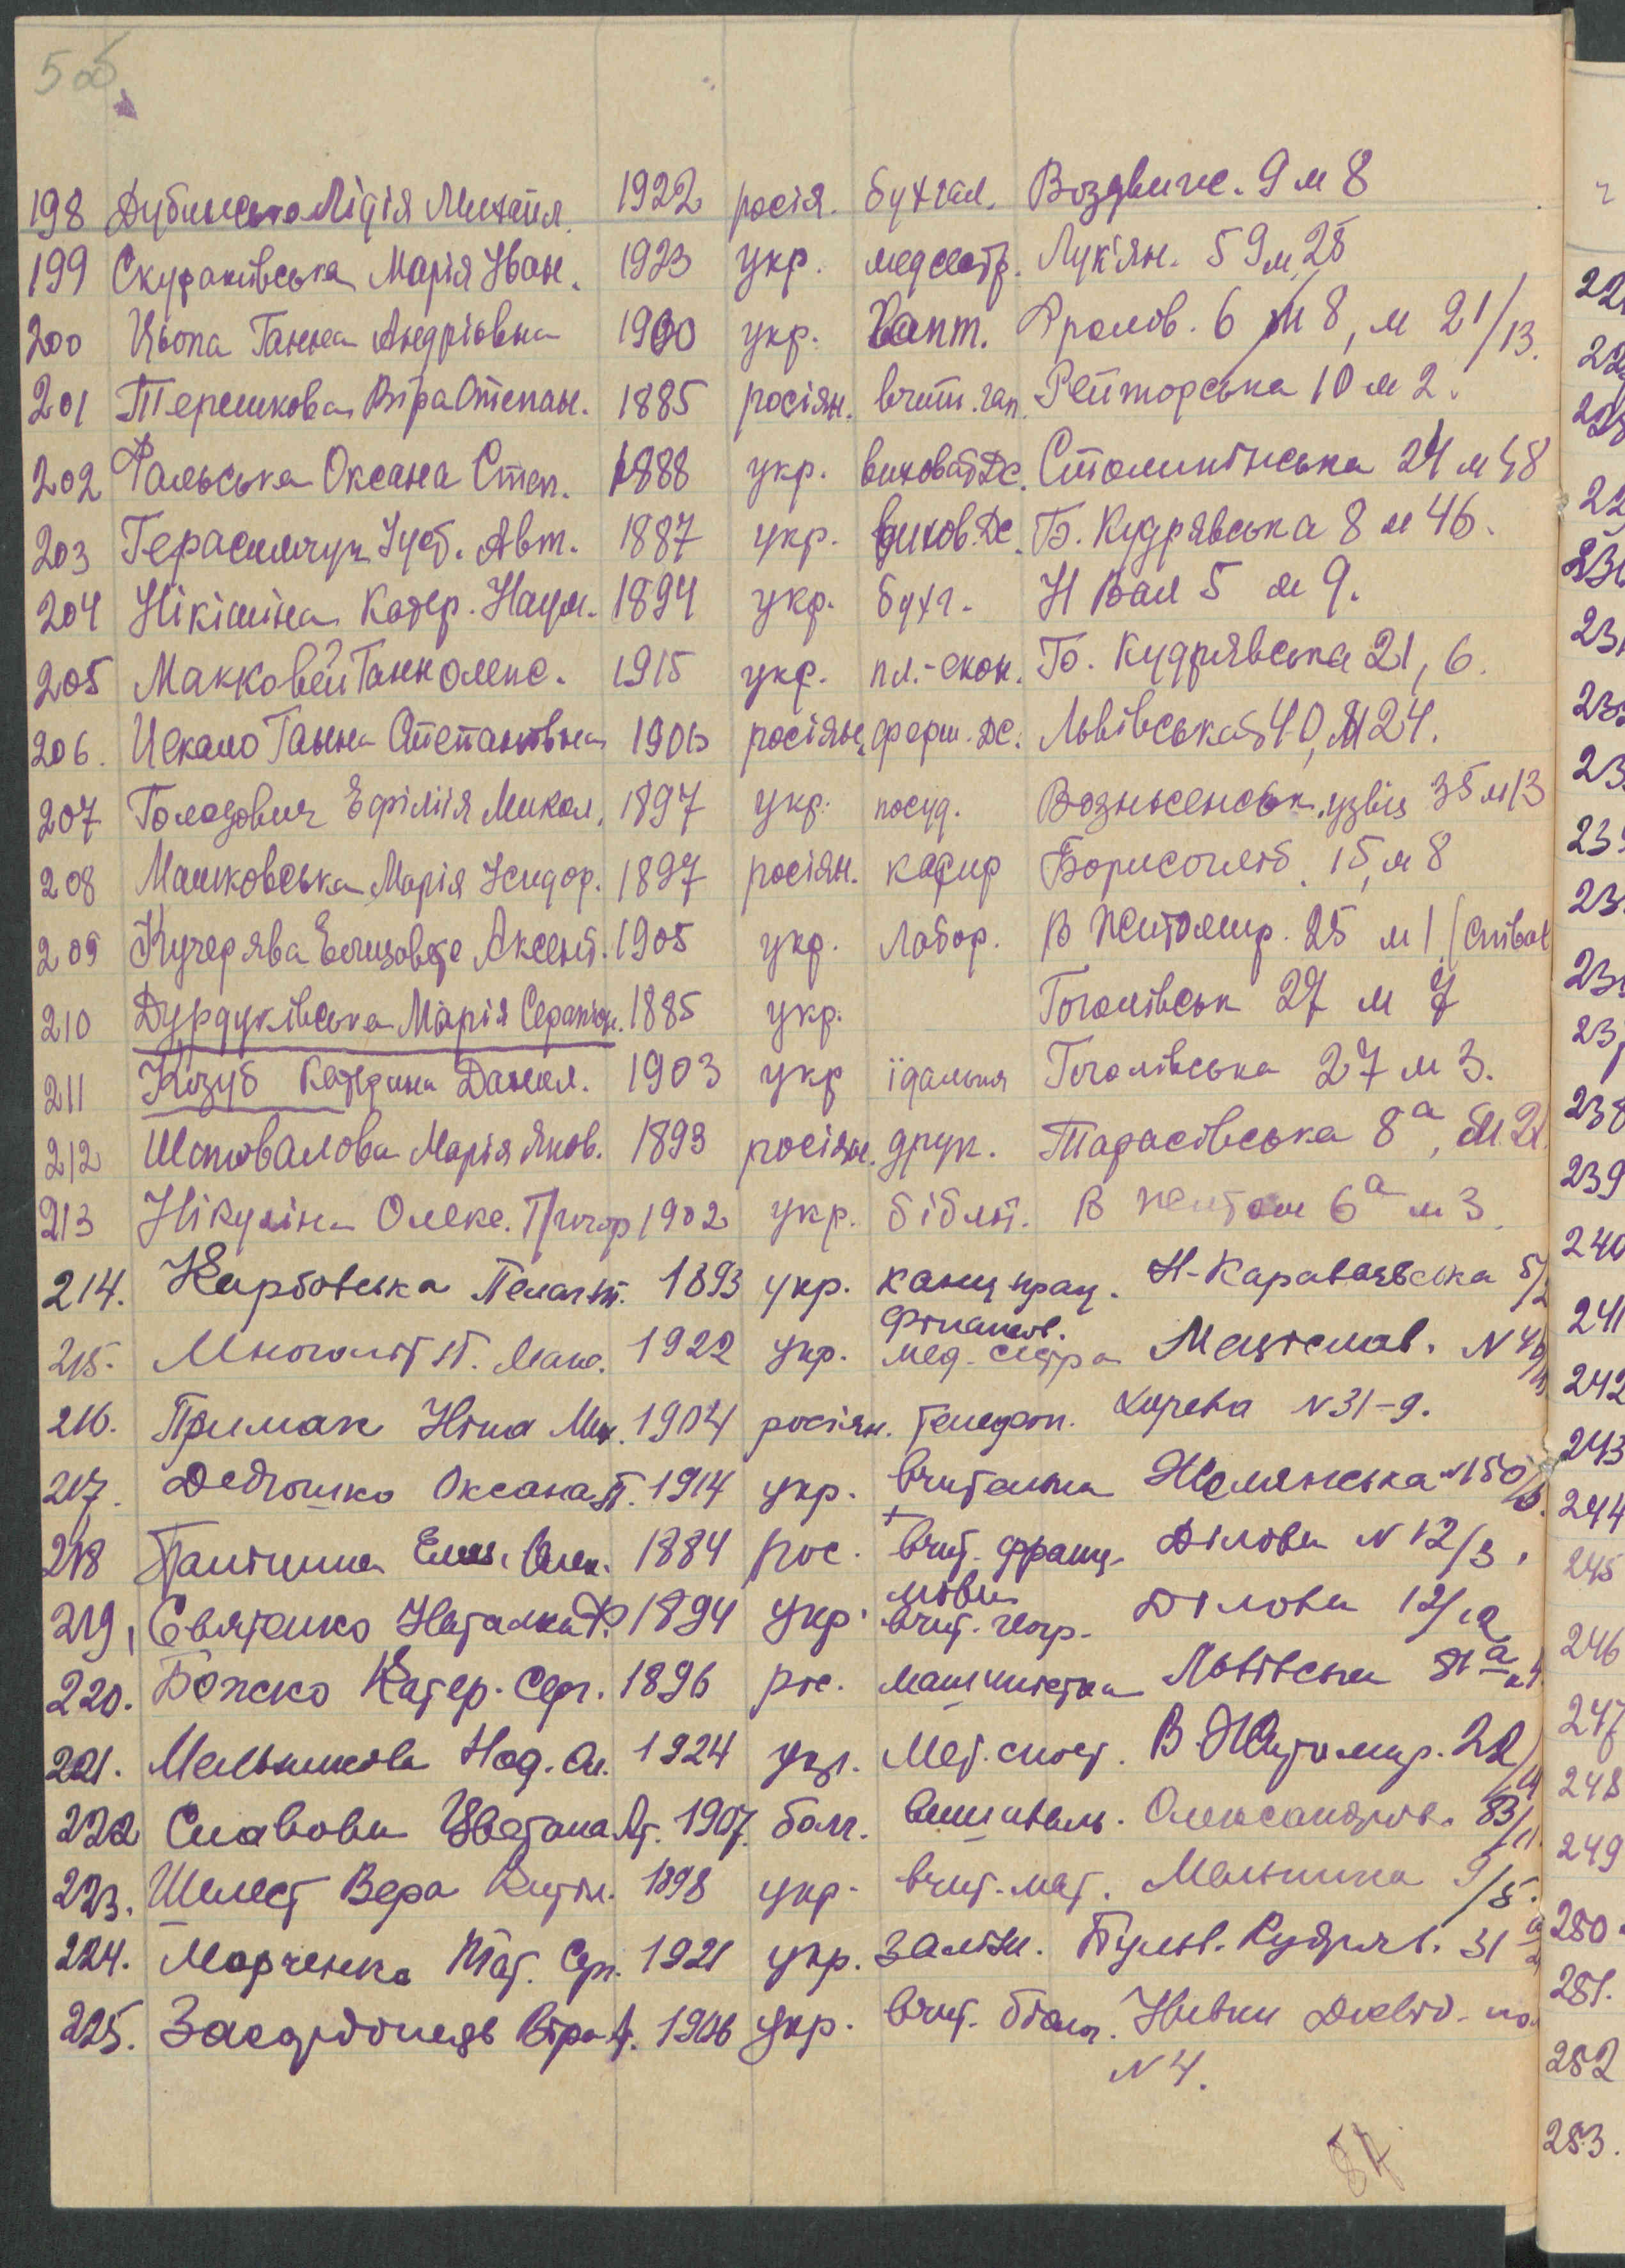 5 об
198 Дубинська Лідія Михайл. 1922 росія. бухгал. Воздвиже. 9 м 8
199 Скураківська Марія Іван. 1923 укр. медсестр. Лук'ян. 59 м 25
200 Цьопа Ганна Андріівна 1900 укр. Гапт. Фролов. 6 м 8, м 21/13.
201 Терешкова Віра Степан. 1885 росіян. вчит. гап. Рейторська 10 м 2.
202 Фальська Оксана Степ. 1888 укр. виховат ДС. Столипінська 24 м 48
203 Герасимчук Іуст. Авт. 1887 укр. вихов. ДС. Б. Кудрявська 8 м 46.
204 Нікітіна Катер. Наум. 1894 укр. бухг. Н Вал 5 м 9.
205 Макковей Ганн Олекс. 1915 укр. пл.-екон. Б. Кудрявська 21, 6.
206. Ганна Степанівна росіян. ферш. ДС. Львівська 40, М 24.
207 Голозович Микол. 1897 укр. посуд. Вознесенськ. узвіз 35 м 13
208 Машковська Марія Ісидор. 1897 росіян. касир Борисогліб. 15, м 8
209 Кучерява Аксент. 1905 укр. Лабор. В Житомир. 25 м 1
210 Дурдуківська Марія Серапіон. 1885 укр. Гоголівськ 27 м 7
211 Козуб Катерина Данил. 1903 укр їдальня Гоголівська 27 м 3.
212 Шаповалова Марія Яков. 1893 росіян. друк. Тарасівська 8а, М 21.
213 Нікуліна Олекс. Григор 1902 укр. бібліот. В Житом 6а м 3.
214. Карбовська Пелаг. 1893 укр. канц прац. Н-Караваєвська 5/2
215. Многоліт П. 1922 укр. мед-сестра Мстіслав. N
фінансов.
216. Примак Ніна Мих. 1904 росіян. телефон. Хорева N 31-9.
217. Оксана П. 1914 укр. вчителька Жилянська N 150/
218 Панічина Єлиз. Олек. 1884 рос. вчит. франц. Ділова N 12/3.
мови
219, Святенко Наталка Ф. 1894 укр. вчит. геогр. Ділова 12/
220. Божко Катер. Серг. 1896 рос. машинистка Львівська
221. Мельникова Над. Ол. 1924 укр. Мет. В. Житомир. 22/
222 Славова Цветана 1907. болг. Олександрів. 83/11.
223. Шелест Вера 1898 укр. вчит. мат. Мельника 9/5.
224. Марченко Тат. Сер. 1921 укр. заліж. Бульв. Кудряв. 31
225. Віра А. 1906 укр. вчит. біолог. Нивки
N 4.
240
241
242
243
244
245
246
247
248
249
250.
251.
252
253.